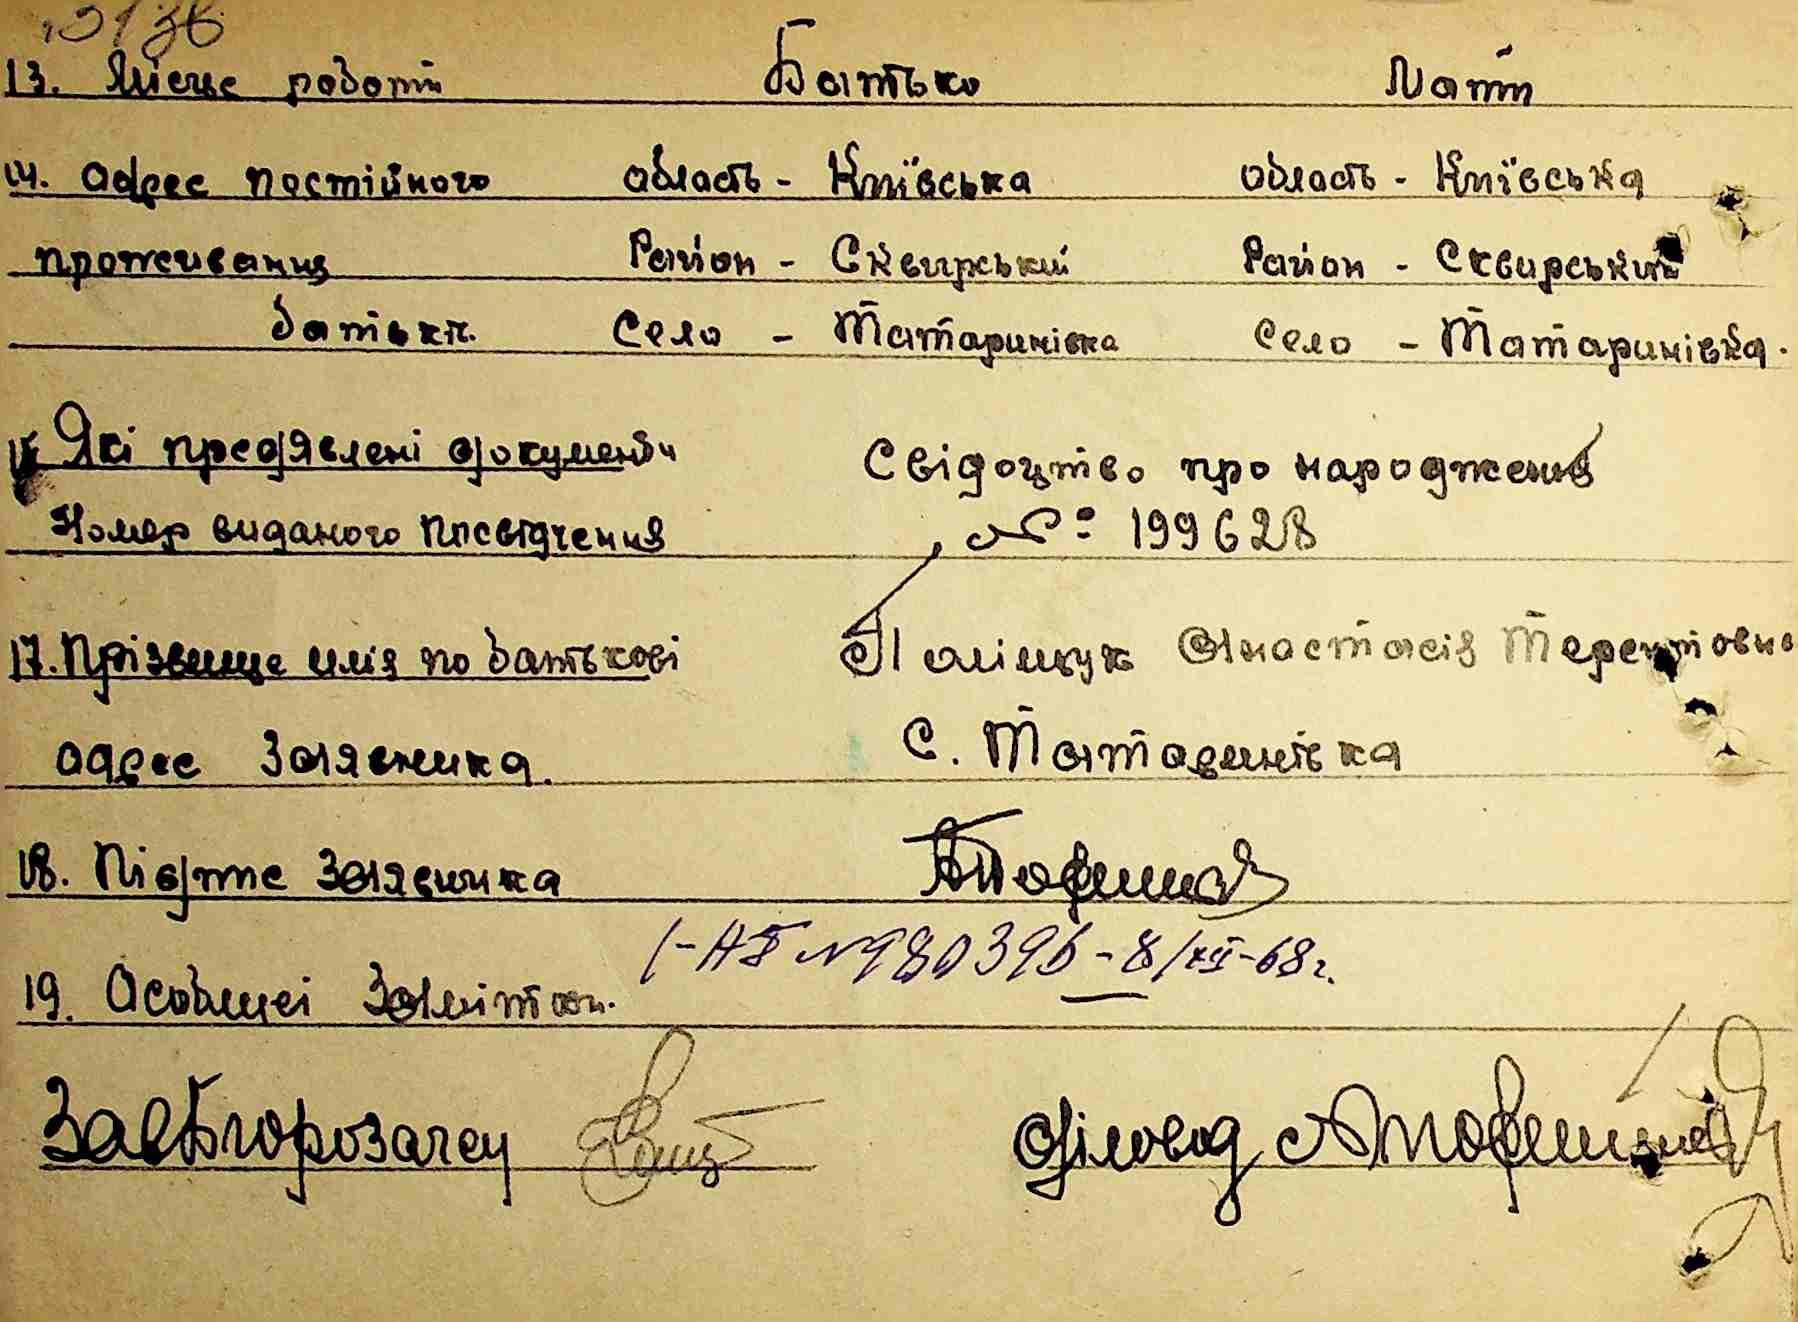 13. Місце роботи Батько Мати
14. адрес постійного область - Київська область - Київська
проживання Район - Сквирський Район - Сквирський
батьків. Село - Татаринівка Село - Татаринівка.
Які предявлені документи Свідоцтво про народження
Номер виданого посвідчення № 199628
17. Прізвище имія по батькові Поліщук Анастасія Терентовна
адрес Заявника. С. Татаринівка
18. Підпис Заявника
1-АБ №980396 - 8/XII-68г.
19. Особливі Замітки.
Завбюрозагсу діловод